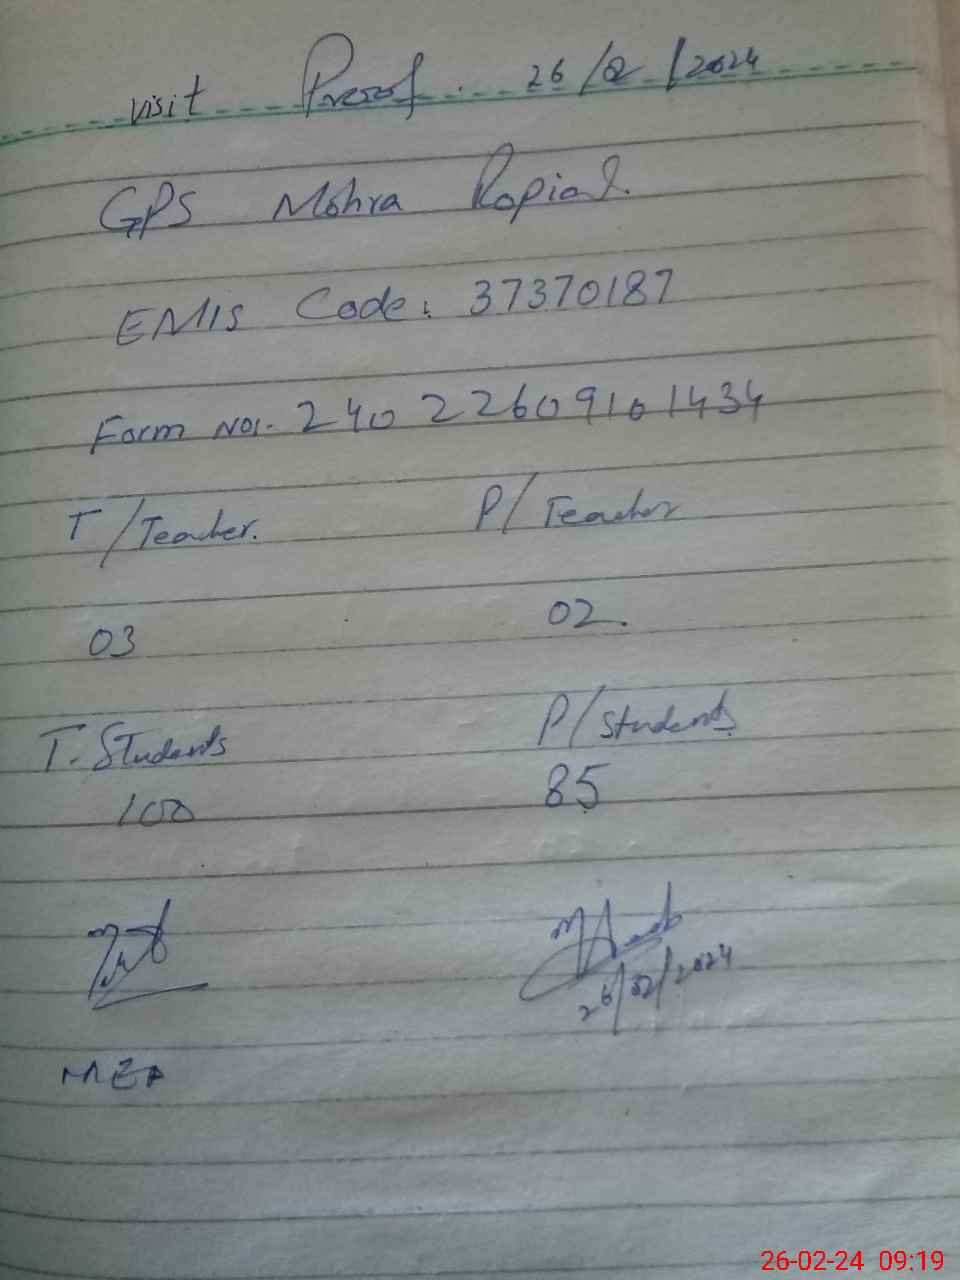 visit Proof. 26/02/2024
GPS Mohra Ropial.
EMIS Code: 37370187
Form No:- 24022609101434
T/Teacher. P/Teacher
03 02.
T. Students P/Students
100 85
26/02/2024
MEA
26-02-24 09:19